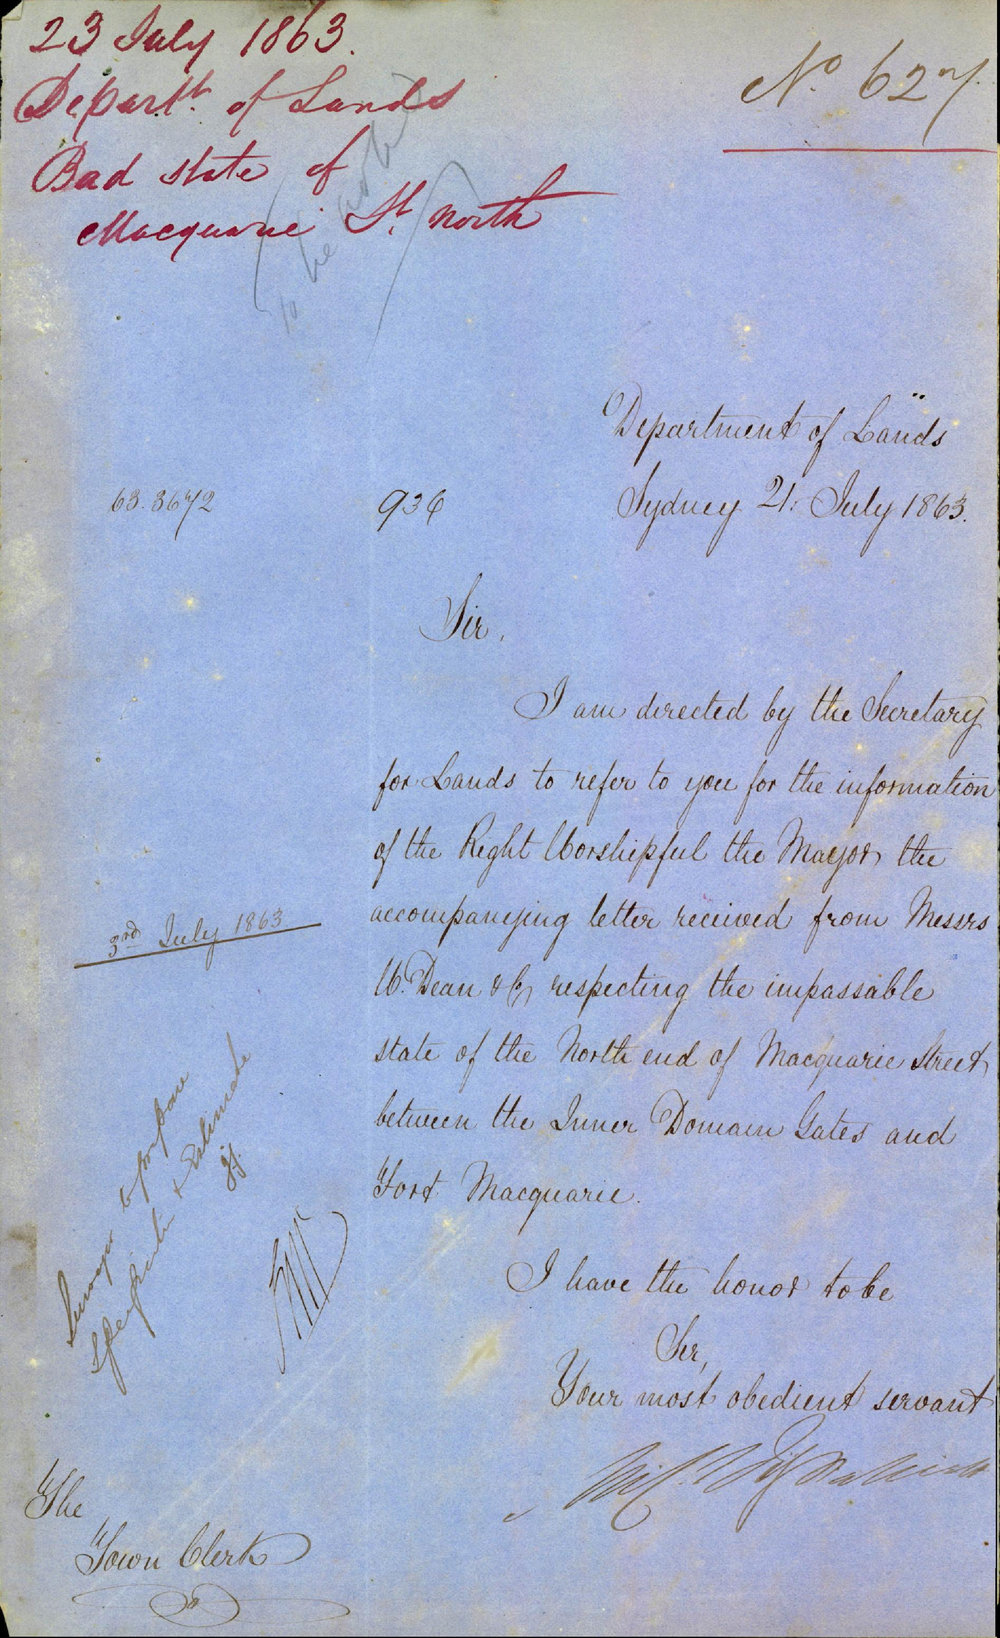 23 July 1863.
Departt. of Lands
Bad state of
Macquarie St. North
No. 627
To be
Department of Lands
63.3672
936
Sydney 21: July 1863.
Sir,
I am directed by the Secretary
for Lands to refer to you for the information
of the Right Worshipful the Mayor the
accompanying letter received from Messrs
W. Dean & Co, respecting the impassable
state of the North end of Macquarie Street
between the Inner Domain Gates and
Fort Macquarie.
3rd July 1863
Surveyor to prepare
Specification & Estimate
I have the honor to be
Sir,
Your most obedient servant
The
Town Clerk